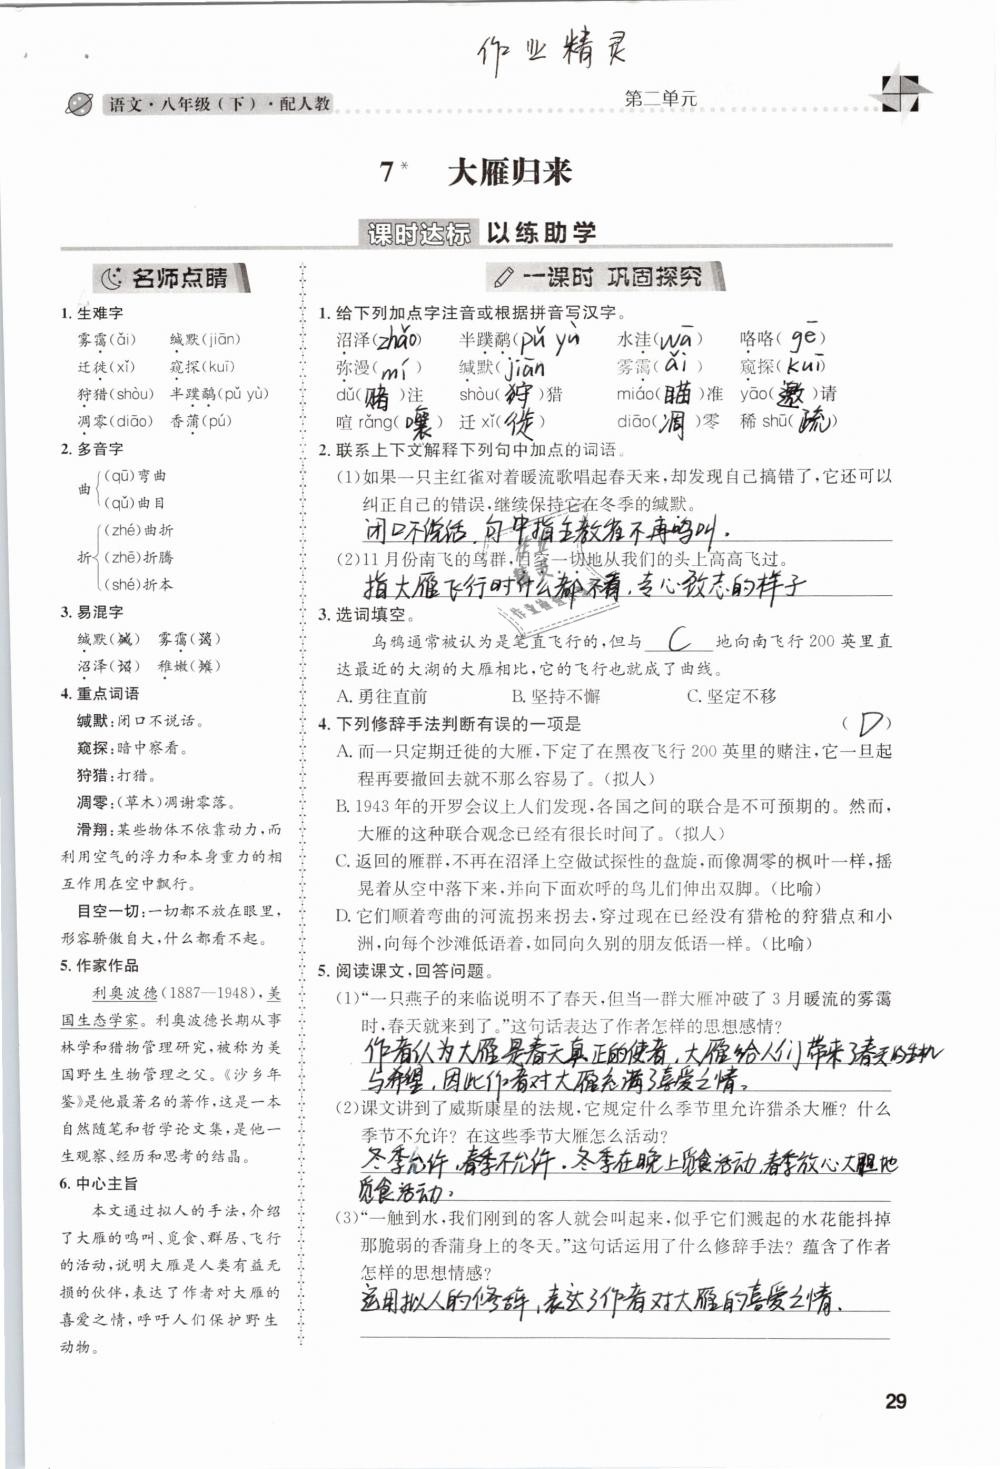 作业精灵
语文·八年级(下)·配人教
第二单元
7* 大雁归来
课时达标 以练助学
名师点睛
1. 生难字
雾霭(ǎi) 缄默(jiān)
迁徙(xǐ) 窥探(kuī)
狩猎(shòu) 半蹼鹬(pǔ yù)
凋零(diāo) 香蒲(pú)
2. 多音字
曲
(qū)弯曲
(qǔ)曲目
折
(zhé)曲折
(zhē)折腾
(shé)折本
3. 易混字
缄默(碱) 雾霭(蔼)
沼泽(诏) 稚嫩(獭)
4. 重点词语
缄默:闭口不说话。
窥探:暗中察看。
狩猎:打猎。
凋零:(草木)凋谢零落。
滑翔:某些物体不依靠动力,而
利用空气的浮力和本身重力的相
互作用在空中飘行。
目空一切:一切都不放在眼里,
形容骄傲自大,什么都看不起。
5. 作家作品
利奥波德(1887—1948),美
国生态学家。利奥波德长期从事
林学和猎物管理研究,被称为美
国野生生物管理之父。《沙乡年
鉴》是他最著名的著作,这是一本
自然随笔和哲学论文集,是他一
生观察、经历和思考的结晶。
6. 中心主旨
本文通过拟人的手法,介绍
了大雁的鸣叫、觅食、群居、飞行
的活动,说明大雁是人类有益无
损的伙伴,表达了作者对大雁的
喜爱之情,呼吁人们保护野生
动物。
一课时 巩固探究
1. 给下列加点字注音或根据拼音写汉字。
沼泽(zhǎo) 半蹼鹬(pǔ yù) 水洼(wā) 咯咯(gē)
弥漫(mí) 缄默(jiān) 雾霭(ǎi) 窥探(kuī)
dǔ(赌)注 shòu(狩)猎 miáo(瞄)准 yāo(邀)请
喧rǎng(嚷) 迁xǐ(徙) diāo(凋)零 稀shū(疏)
2. 联系上下文解释下列句中加点的词语。
(1)如果一只主红雀对着暖流歌唱起春天来,却发现自己搞错了,它还可以
纠正自己的错误,继续保持它在冬季的缄默。
闭口不说话,句中指主教雀不再鸣叫.
(2)11月份南飞的鸟群,目空一切地从我们的头上高高飞过。
指大雁飞行时什么都不看,专心致志的样子
3. 选词填空。
乌鸦通常被认为是笔直飞行的,但与 C 地向南飞行200英里直
达最近的大湖的大雁相比,它的飞行也就成了曲线。
A. 勇往直前 B. 坚持不懈 C. 坚定不移
4. 下列修辞手法判断有误的一项是 (D)
A. 而一只定期迁徙的大雁,下定了在黑夜飞行200英里的赌注,它一旦起
程再要撤回去就不那么容易了。(拟人)
B. 1943年的开罗会议上人们发现,各国之间的联合是不可预期的。然而,
大雁的这种联合观念已经有很长时间了。(拟人)
C. 返回的雁群,不再在沼泽上空做试探性的盘旋,而像凋零的枫叶一样,摇
晃着从空中落下来,并向下面欢呼的鸟儿们伸出双脚。(比喻)
D. 它们顺着弯曲的河流拐来拐去,穿过现在已经没有猎枪的狩猎点和小
洲,向每个沙滩低语着,如同向久别的朋友低语一样。(比喻)
5. 阅读课文,回答问题。
(1)“一只燕子的来临说明不了春天,但当一群大雁冲破了3月暖流的雾霭
时,春天就来到了。”这句话表达了作者怎样的思想感情?
作者认为大雁是春天真正的使者,大雁给人们带来了春天的生机
与希望,因此作者对大雁充满了喜爱之情。
(2)课文讲到了威斯康星的法规,它规定什么季节里允许猎杀大雁?什么
季节不允许?在这些季节大雁怎么活动?
冬季允许,春季不允许.冬季在晚上觅食活动,春季放心大胆地
觅食活动。
(3)“一触到水,我们刚到的客人就会叫起来,似乎它们溅起的水花能抖掉
那脆弱的香蒲身上的冬天。”这句话运用了什么修辞手法?蕴含了作者
怎样的思想情感?
运用拟人的修辞,表达了作者对大雁的喜爱之情.
29